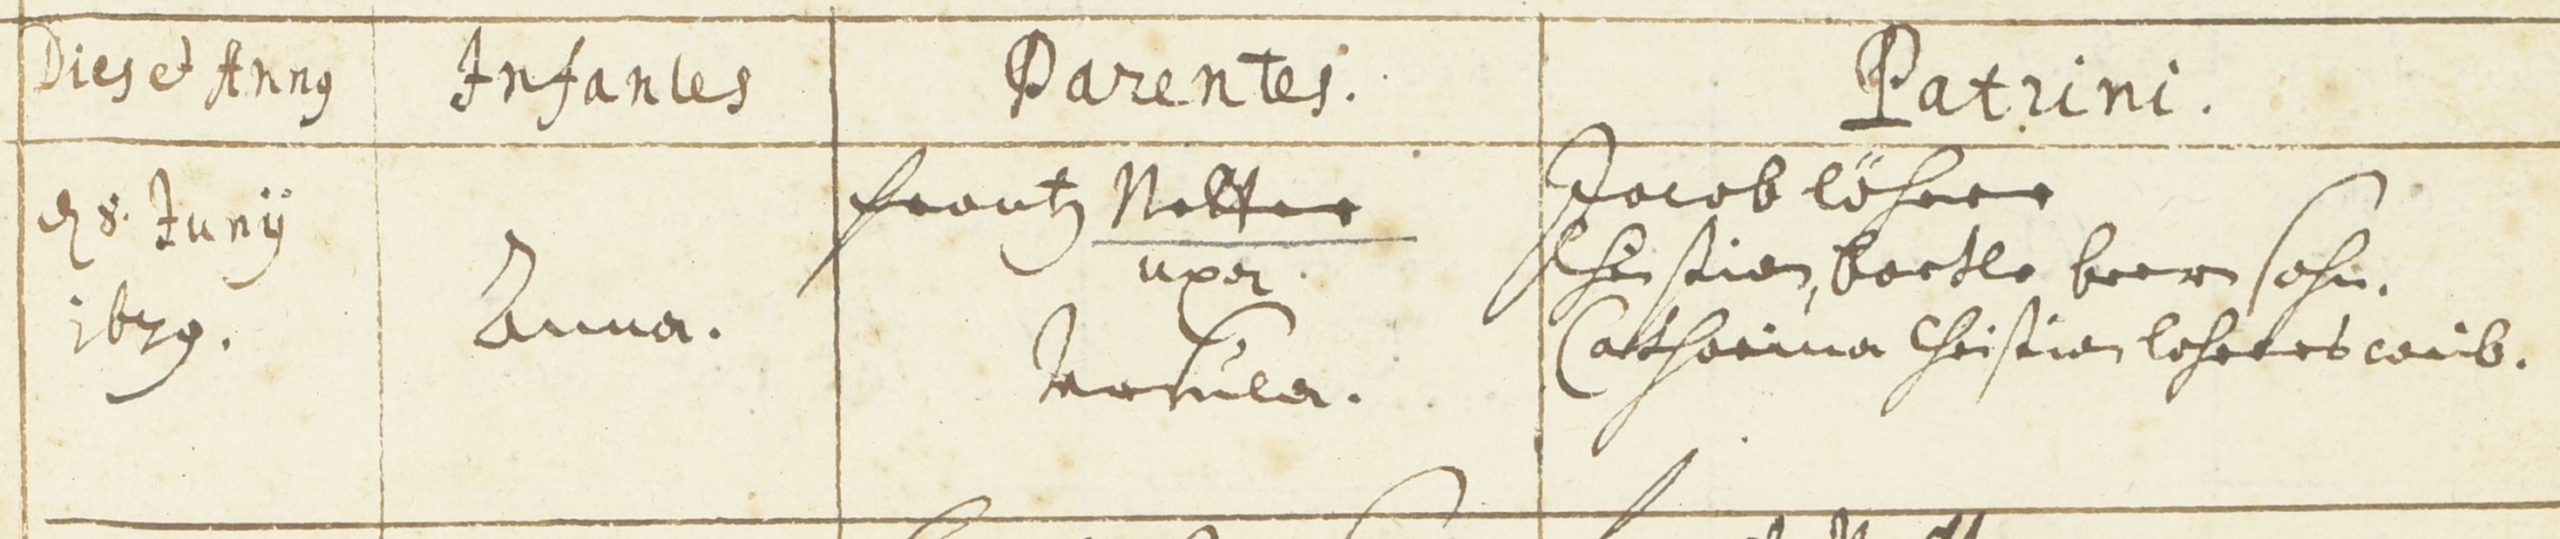 Dies et Anno
Infantes
Parentes.
Patrini.
8. Junÿ
1679.
Anna.
Frantz Nolter
uxor
Ursula.
Jacob löherr
Christian, bartle beern sohn.
Catharina Christian leherrs weib.